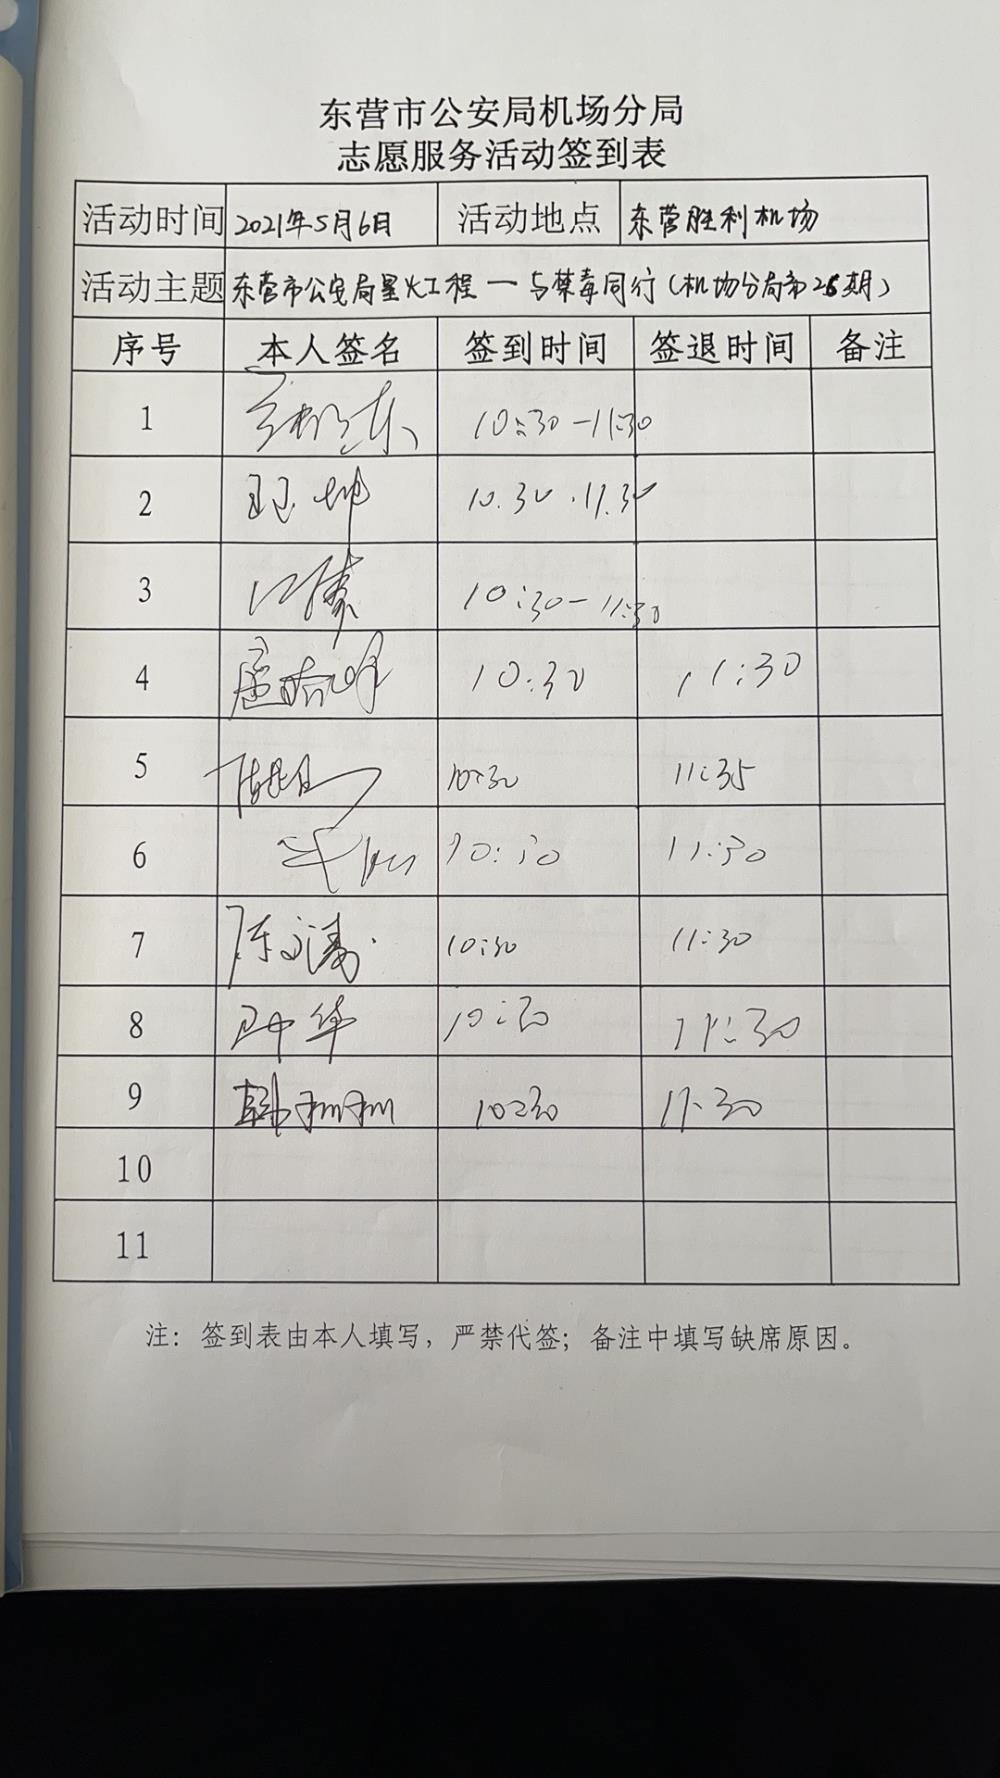 东营市公安局机场分局
志愿服务活动签到表
活动时间 2021年5月6日 活动地点 东营胜利机场
活动主题 东营市公安局星火工程一与禁毒同行(机场分局第26期)
序号 本人签名 签到时间 签退时间 备注
1 10:30-11:30
2 10.30 . 11.30
3 10:30-11:30
4 10:30 11:30
5 10:30 11:35
6 10:30 11:30
7 陈文涛 10:30 11:30
8 10:30 11:30
9 韩利利 10:30 11:30
10
11
注：签到表由本人填写，严禁代签；备注中填写缺席原因。